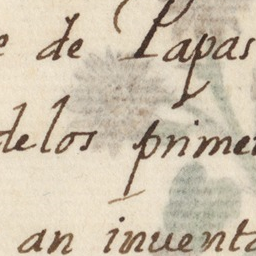 e de Papas
delos prime
an inventa